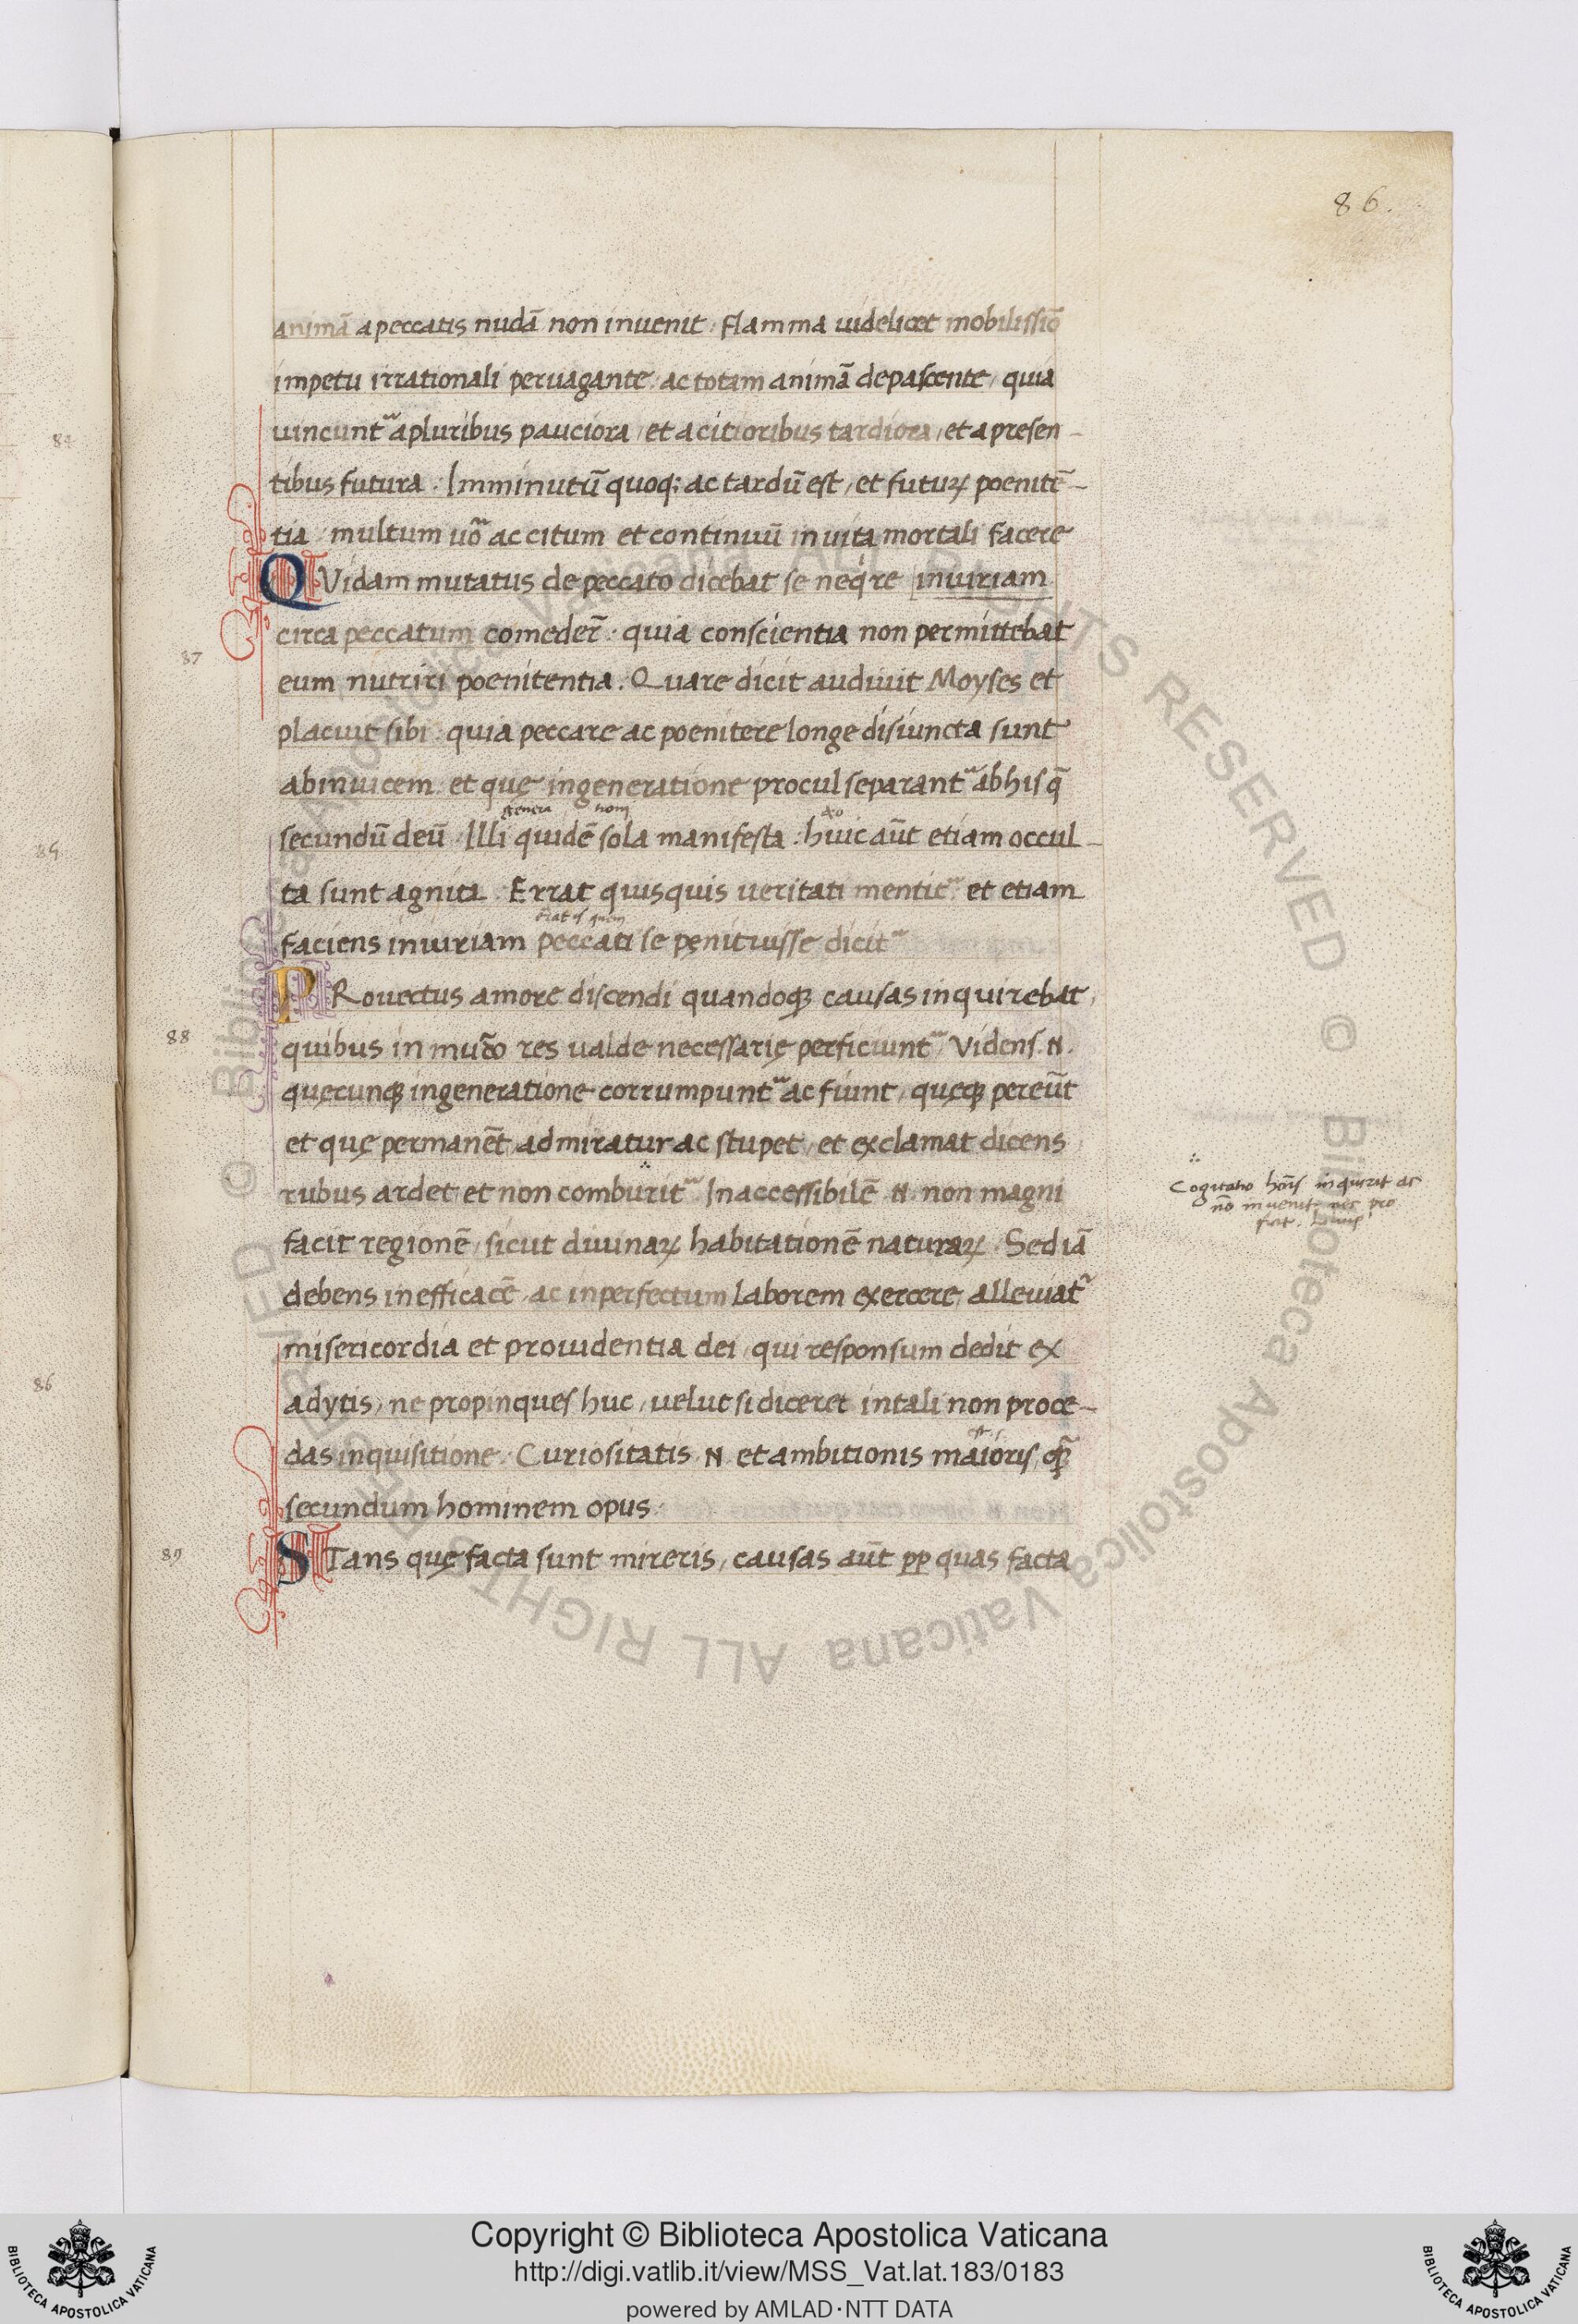 86.
animā a peccatis nudā non inuenit. Flamma uidelicet mobilissiō
impetu irrationali peruagante, ac totam animā depascente, quia
uincunt᷑ a pluribus pauciora, et a citioribus tardiora, et a presen-
tibus futura. Imminutū quoq; ac tardū est, et futuꝝ poenitē-
tia multum uō ac citum et continuū in uita mortali facere
QVidam mutatus de peccato dicebat se neq́re iniuriam
circa peccatum comeder̄. quia conscientia non permittebat
87
eum nutriri poenitentia. Quare dicit audiuit Moyses et
placuit sibi. quia peccare ac poenitere longe disiuncta sunt
abinuicem. et quę in generatione procul separant᷑ ab his q̄
genera
secundū deū. Illi quidē sola manifesta. huic aūt etiam occul-
ta sunt agnita. Errat quisquis ueritati mentit᷑ et etiam
faciens iniuriam peccati se pęnituisse dicit᷑
PRouectus amore discendi quandoqꝫ causas inquirebat,
88
quibus in mūdo res ualde necessarię perficiunt᷑, Videns .N.
quęcunqꝫ in generatione corrumpunt᷑ ac fiunt, quęqꝫ pereūt
et quę permanēt, admiratur ac stupet, et exclamat dicens
rubus ardet et non comburit᷑. Inaccessibilē .N. non magni
facit regionē, sicut diuinaꝝ habitationē naturaꝝ. Sed iā
debens inefficacē, ac inperfectum laborem exercere, alleuiat᷑
misericordia et prouidentia dei, qui responsum dedit ex
adytis, ne propinques huc, uelut si diceret in tali non proce-
das inquisitione. Curiositatis .N. et ambitionis maioris, q̄ꝫ
secundum hominem opus.
89
STans quę facta sunt mireris, causas aūt pp quas facta
∴
Cogitatio hōis inquirit ac
nō inuenit
84
85
86
Copyright © Biblioteca Apostolica Vaticana
http://digi.vatlib.it/view/MSS_Vat.lat.183/0183
powered by AMLAD·NTT DATA
BIBLIOTECA APOSTOLICA VATICANA
BIBLIOTECA APOSTOLICA VATICANA
© Biblioteca Apostolica Vaticana ALL RIGHTS RESERVED © Biblioteca Apostolica Vaticana ALL RIGHTS RESERVED